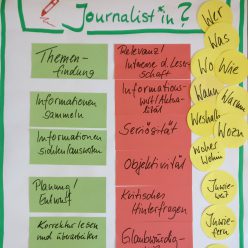 Journalist*in?
Themen-
findung
Informationen
sammeln
Informationen
Planung/
Entwurf
Korrektur lesen
und überarbeiten
Relevanz/
Interesse d. Leser-
schaft
Informations-
Seriösität
Objektivität
Kritisches
Hinterfragen
Glaubwürdig-
Wer
Was
Wo Wie
Wann Warum
Weshalb Wozu
Woher
Wohin
Inwie-
weit
Inwie-
fern